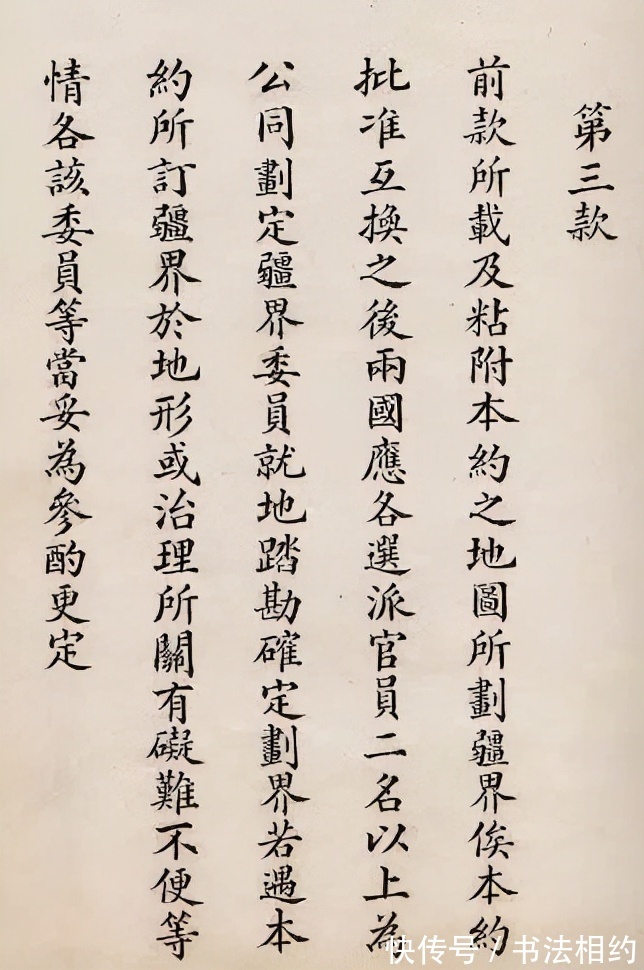 第三款
前款所載及粘附本約之地圖所劃疆界俟本約
批准互換之後兩國應各選派官員二名以上為
公同劃定疆界委員就地踏勘確定劃界若遇本
約所訂疆界於地形或治理所關有礙難不便等
情各該委員等當妥為參酌更定
快传号/书法相约